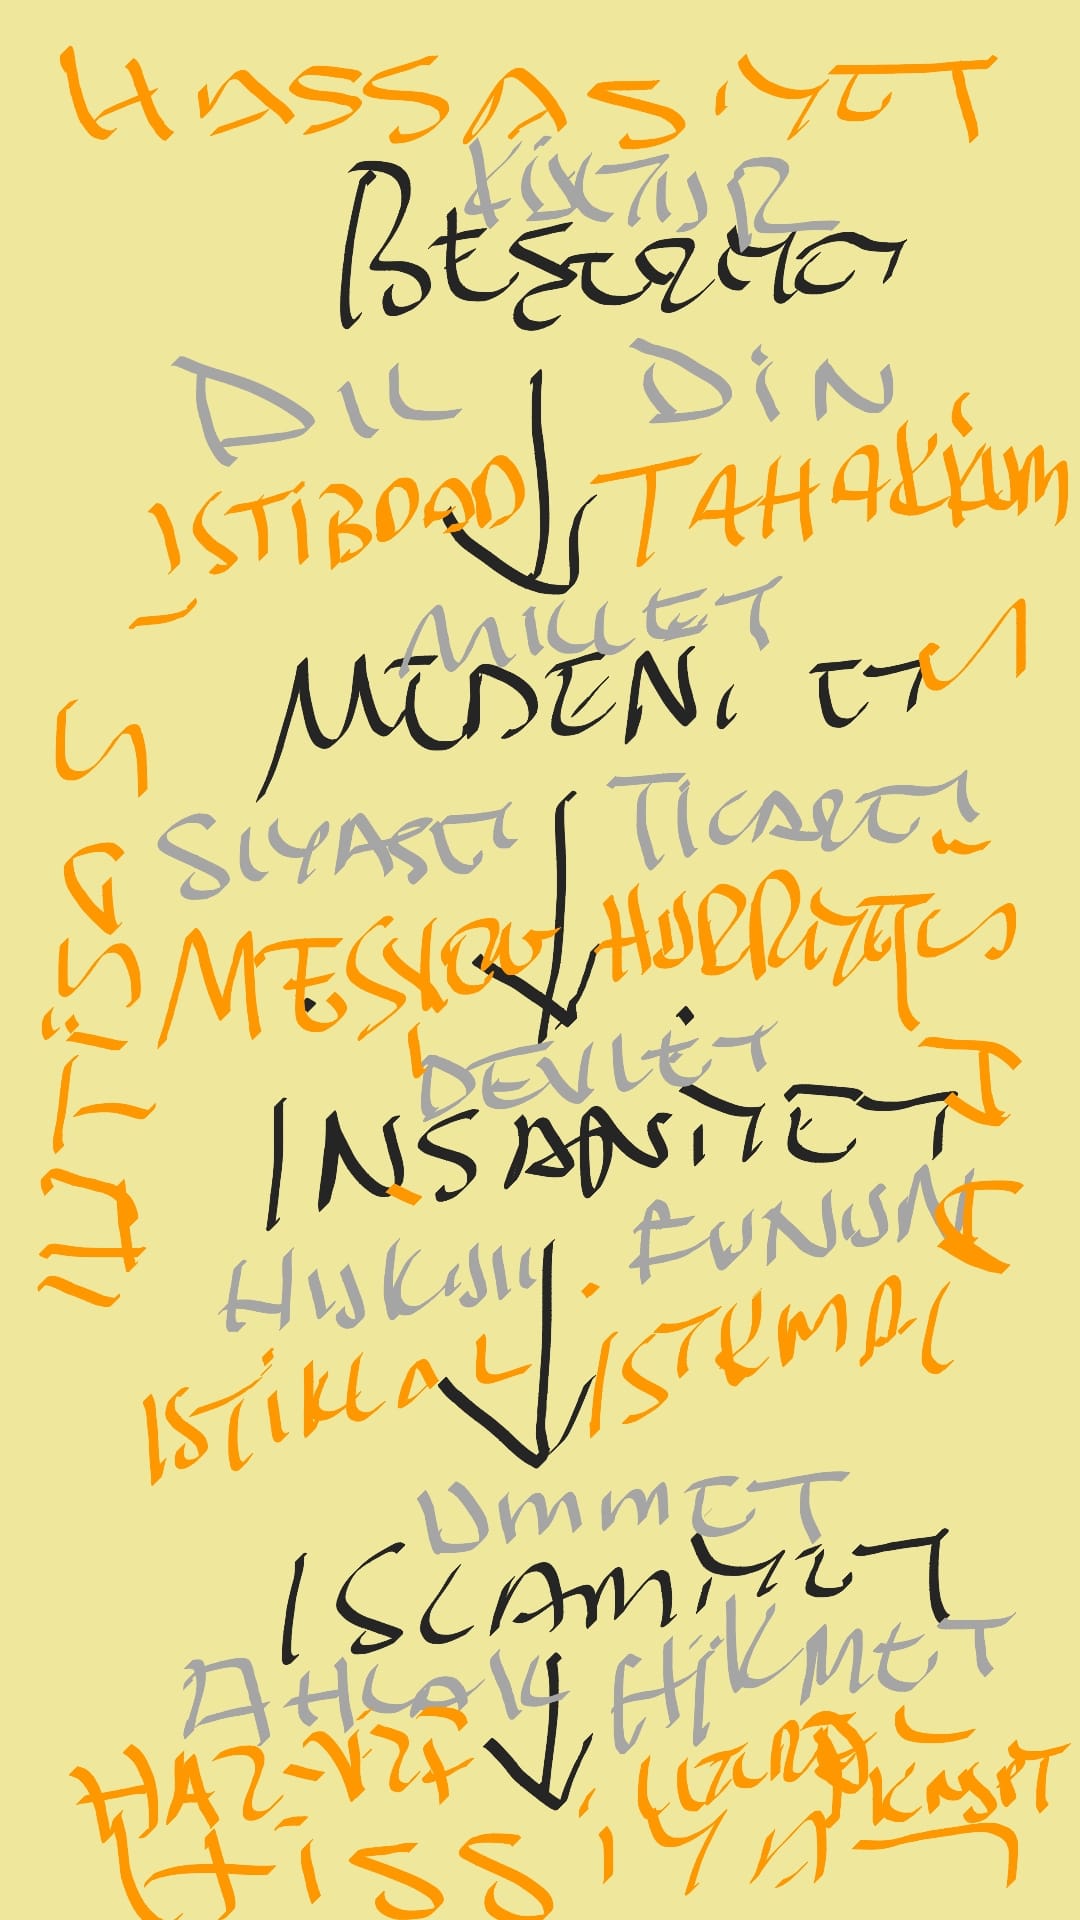 HASSASiYET
KÜLTÜR
BEŞERiYET
DIL DiN
ISTiBDAD TAHAKKUM
MiLLET
MEDENi ET
SIYASET TiCARET
MEŞK HÜRRiYET
DEVLET
INSANiYET
HUKUK FUNUN
ISTiKLAL iSTEKMAL
UMMET
ISLAMiYET
AHLAK HiKMET
HAZ-VEZ
HiSSiYAT
IHTiSAS